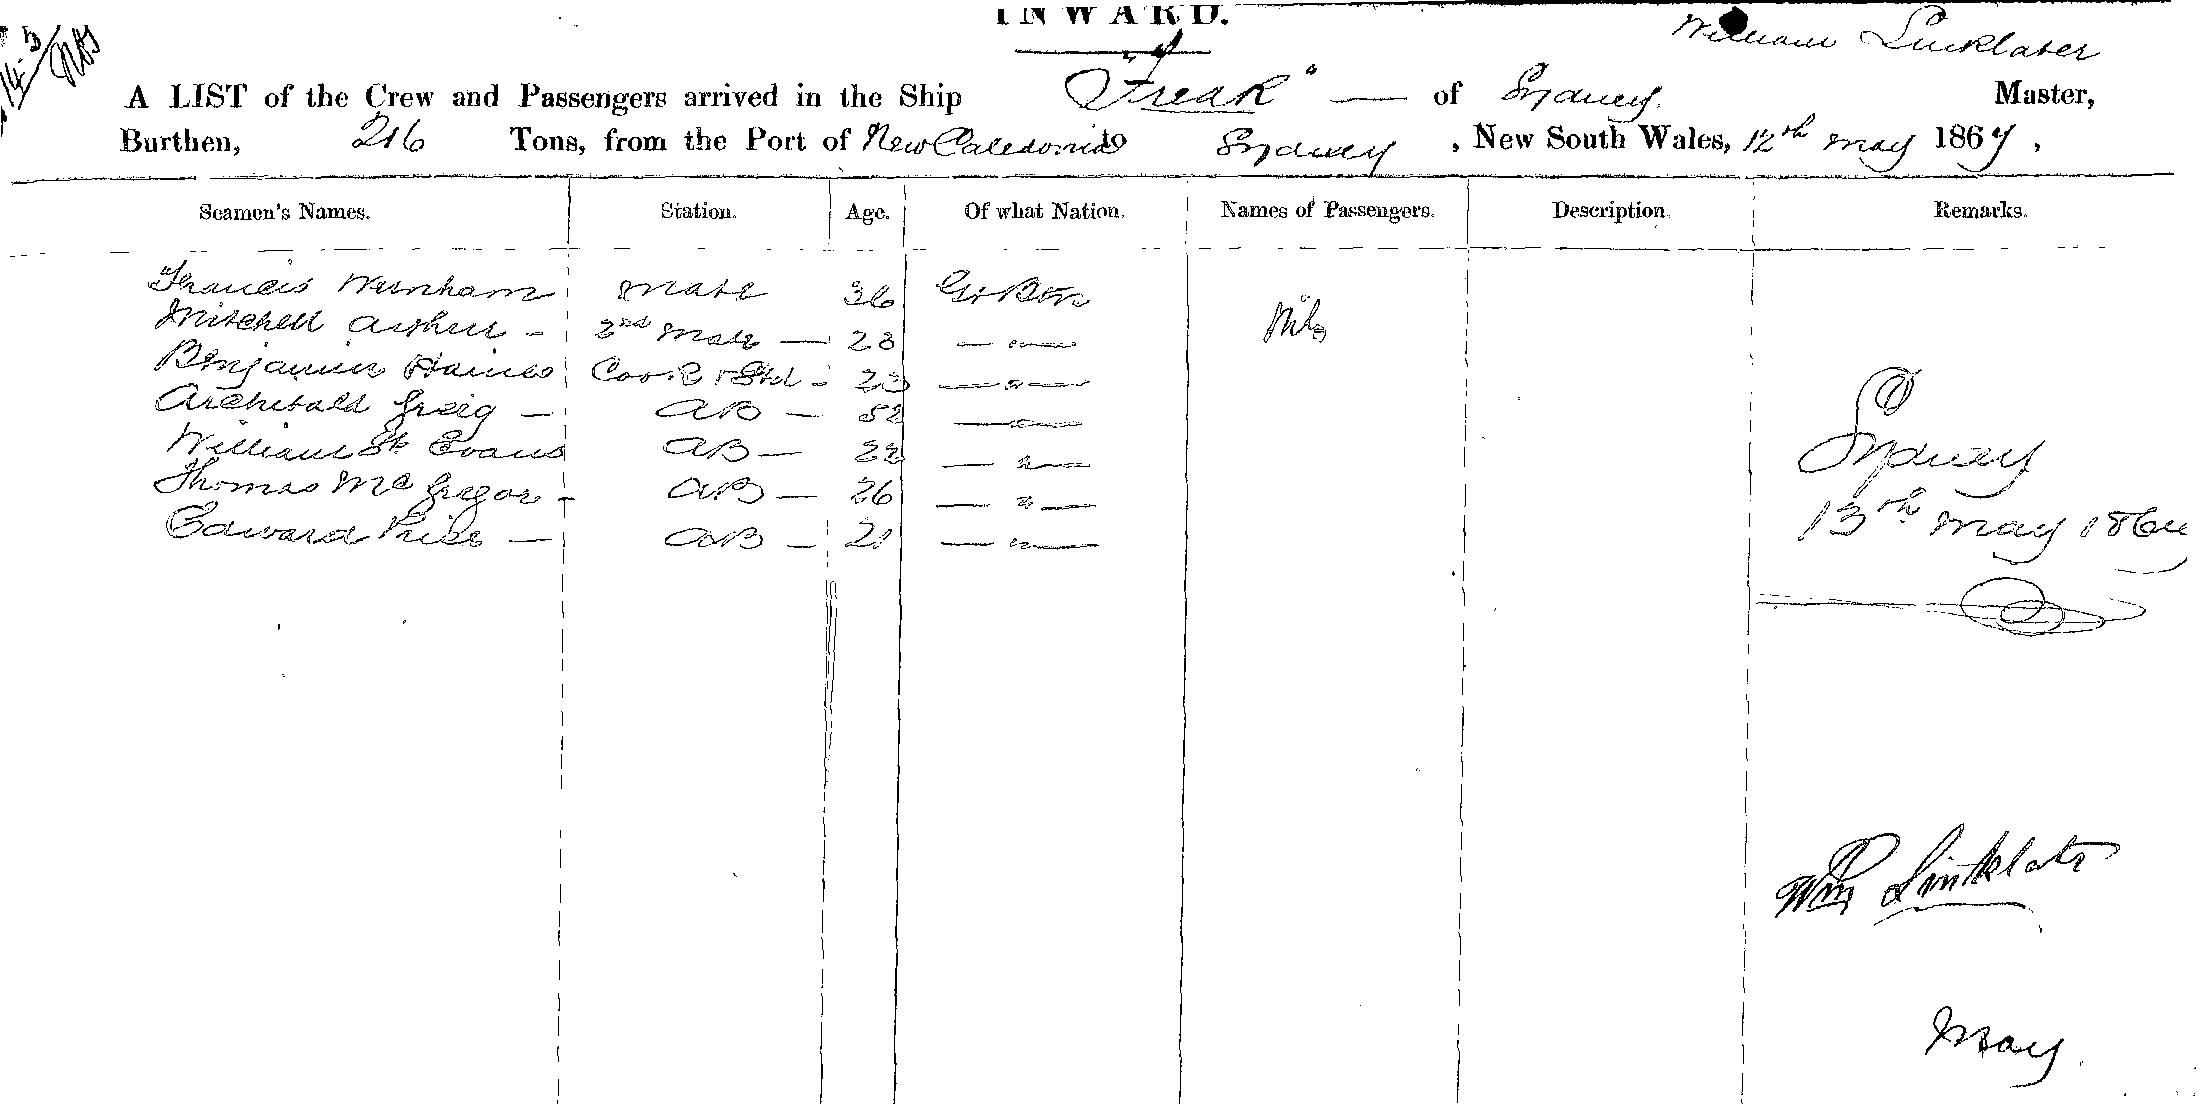 INWARD.
William Linklater
A LIST of the Crew and Passengers arrived in the Ship "Freak" — of Sydney Master,
Burthen, 216 Tons, from the Port of New Caledonia to Sydney, New South Wales, 12th May 1864,
Seamen's Names. Station. Age. Of what Nation. Names of Passengers. Description. Remarks.
Francis Wernham Mate 36 Gt Btn
Mitchell Arthur — 2nd Mate — 23 — " — Nil
Benjamin Haines Cook & Std — 23 — " —
Archibald Greig — AB — 52 — " —
William St Evans AB — 22 — " —
Thomas McGregor — AB — 26 — " —
Edward Price — AB — 21 — " —
Sydney
13th May 1864
Wm Linklater
May